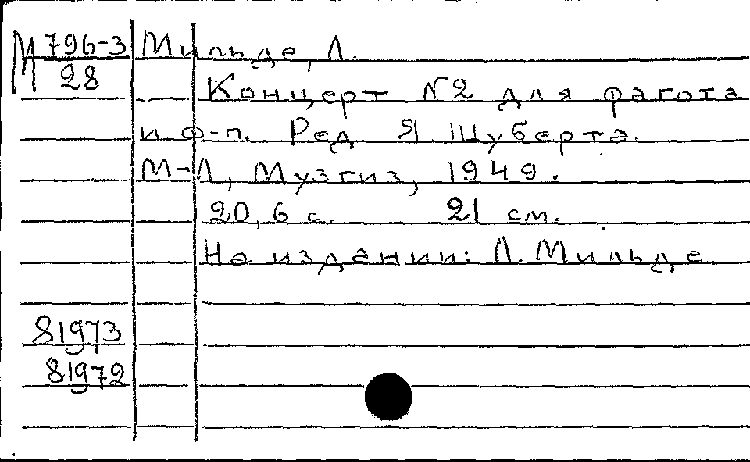 М 796-3
28
Мильде, Л.
Концерт №2 для фагота
и ф-п. Ред Я Шуберта.
М-Л, Музгиз, 1949.
20, 6 с. 21 см.
На издании: Л. Мильде
81973
81972